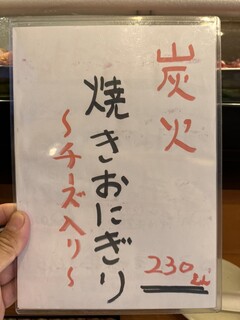 炭火
焼きおにぎり
～チーズ入り～
230